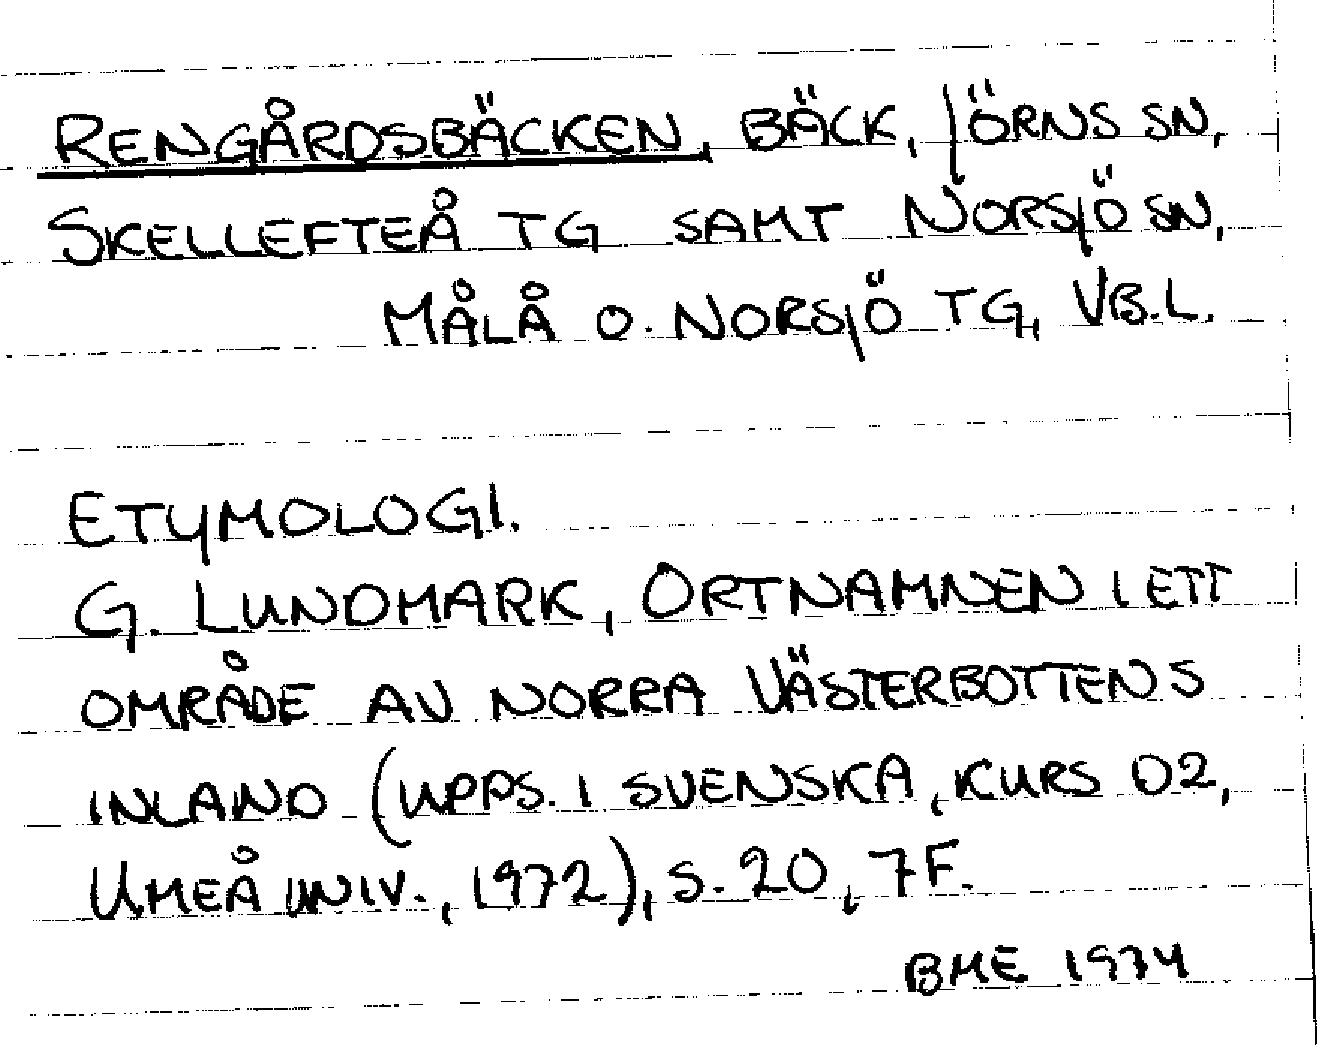 RENGÅRDSBÄCKEN, BÄCK, JÖRNS SN,
SKELLEFTEÅ TG SAMT NORSJÖ SN,
MÅLÅ O. NORSJÖ TG, VB.L.
ETYMOLOGI.
G. LUNDMARK, ORTNAMNEN I ETT
OMRÅDE AV NORRA VÄSTERBOTTENS
INLAND (UPPS. I SVENSKA, KURS D2,
UMEÅ UNIV., 1972), S. 20, 7F.
BME 1974